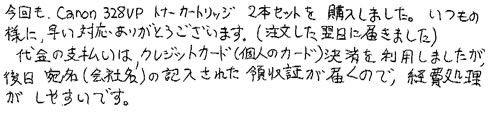 今回も、Canon 328VP トナーカートリッジ 2本セットを 購入しました。いつもの
様に、早い対応、ありがとうございます。(注文した翌日に届きました)
代金の支払いは、クレジットカード(個人のカード)決済を利用しましたが、
後日 宛名(会社名)の記入された 領収証が届くので、経費処理
が しやすいです。